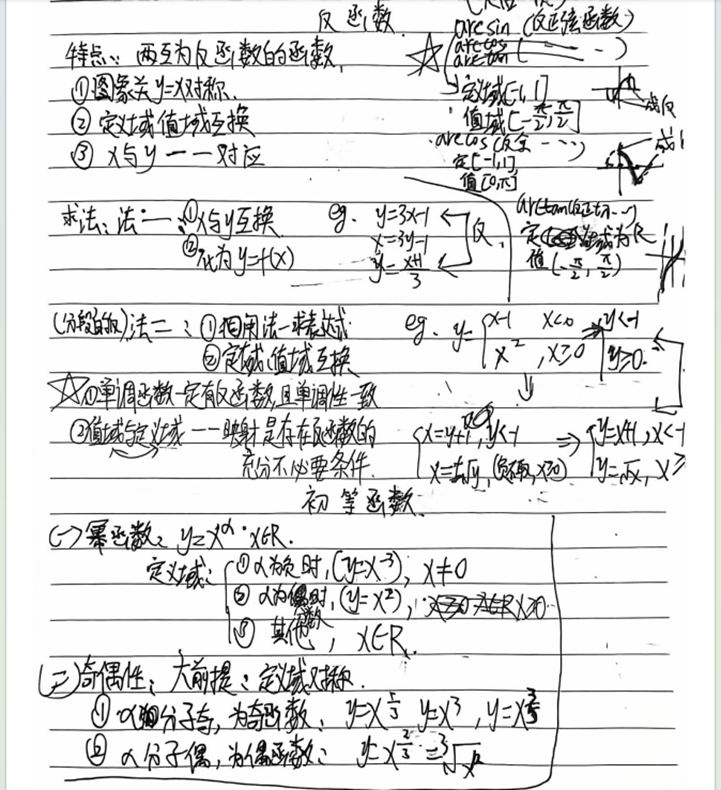 反函数
特点:两互为反函数的函数
①图象关y=x对称.
②定义域值域互换
③x与y一一对应
arcsin(反正弦函数)
arccos
arctan(······)
定义域[-1,1]
值域[-π/2,π/2]
arccos(反余···)
定[-1,1]
值[0,π]
arctan(反正切···)
定义域为R
值(-π/2,π/2)
求法:法一:①x与y互换
②化为y=f(x)
eg. y=3x-1
x=3y-1
y=(x+1)/3
反
(分段的反)法二:①相同法一求表达式
②定域、值域互换
eg. y={x-1 x<0 ⇒ {y<-1
x², x≥0 y≥0.
☆①单调函数一定有反函数,且单调性一致
②值域与定义域一一映射是存在反函数的
充分不必要条件.
{x=y+1, y<-1 ⇒ {y=x+1, x<-1
x=±√y, x≥0) y=√x, x≥
初等函数
(一)幂函数:y=x^α·x∈R.
定义域:{①α为负时,(y=x⁻³), x≠0
②α为偶时,(y=x²),
③其他, x∈R.
(二)奇偶性:大前提:定义域对称.
①α分子奇,为奇函数: y=x³
②α分子偶,为偶函数: y=x^(2/3)=³√x²